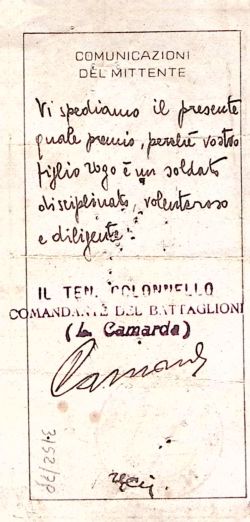 COMUNICAZIONI
DEL MITTENTE
Vi spediamo il presente
quale premio, perchè vostro
figlio Ugo è un soldato
disciplinato, volenteroso
e diligente.
IL TEN. COLONNELLO
COMANDANTE DEL BATTAGLIONE
(L. Camarda)
Camarda
3152/39